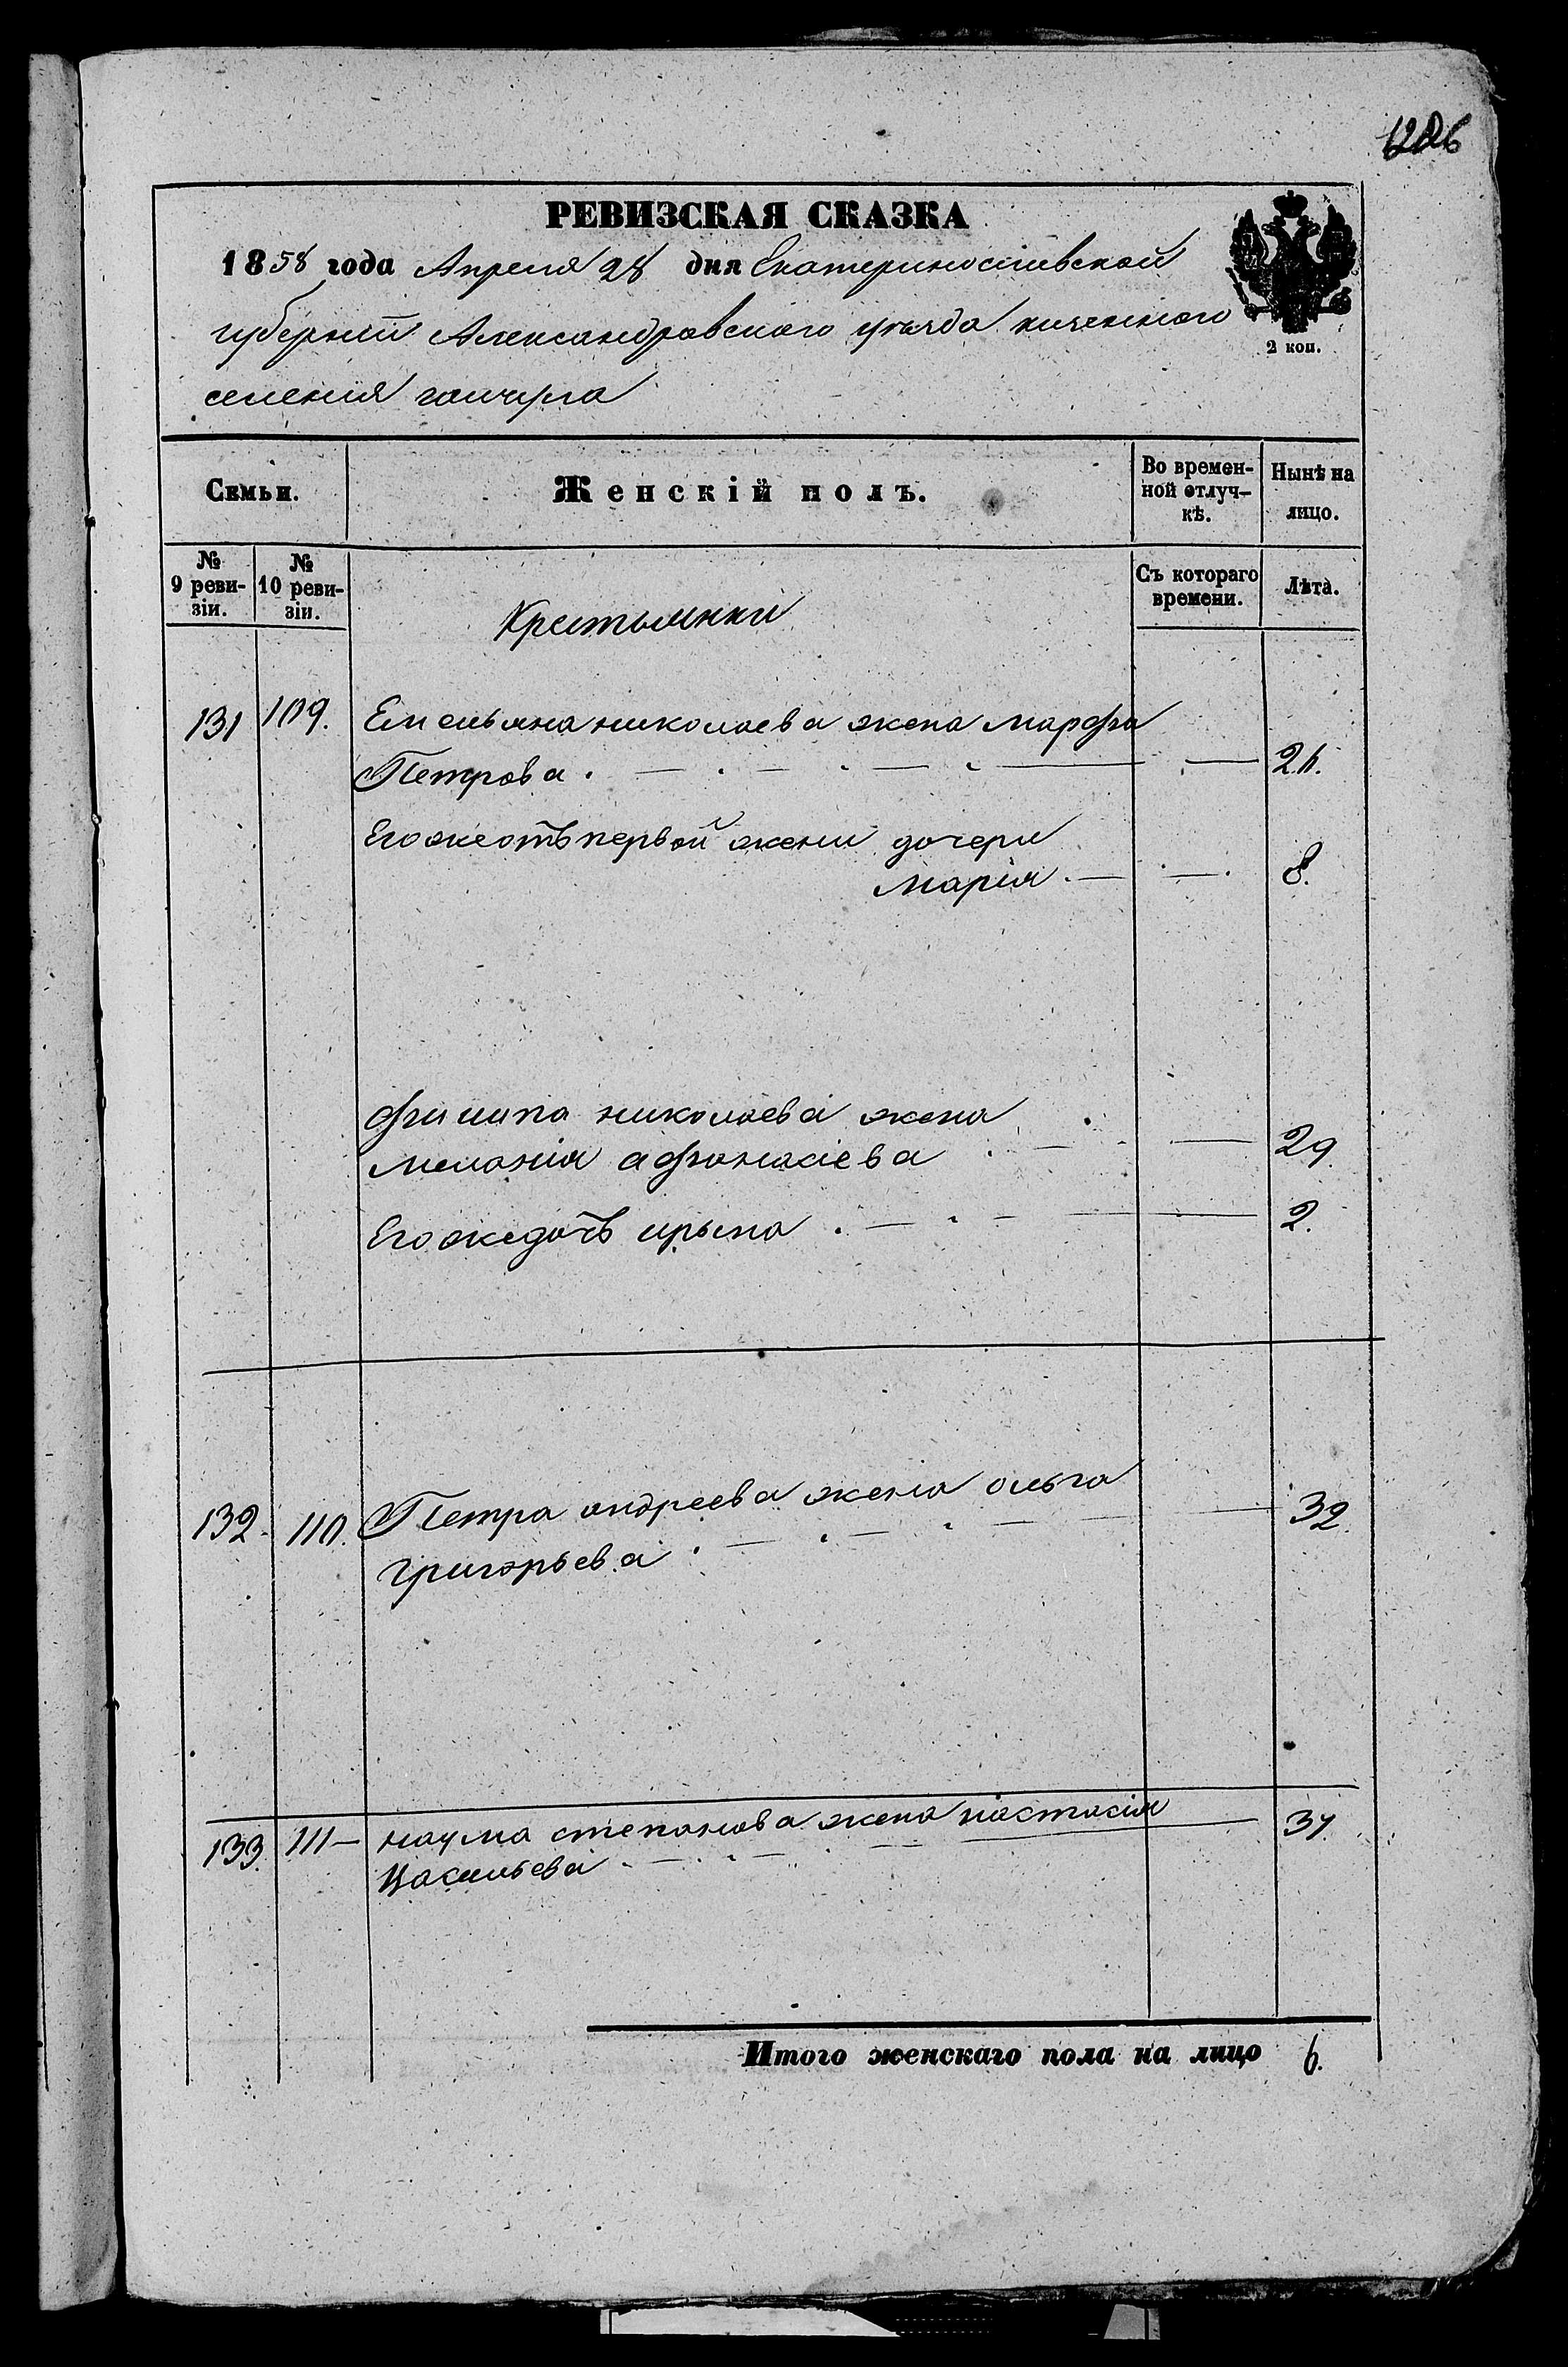 РЕВИЗСКАЯ СКАЗКА
1858 года Апреля 28 дня Екатериносливской
губернiи Александровского уезда казенного
селения гайчура
2 коп.
Семьи. Женскiй полъ. Во времен-ной отлуч-кѣ. Нынѣ на лицо.
№ 9 реви-зiи. № 10 реви-зiи. Съ котораго времени. Лѣта.
Крестьянки
131 109. Емельяна николаева жена марфа
Петрова. 26.
Его же отъ первой жени дочери
марiя. 8.
филипа николаева жена
меланiя афанасiева 29.
Его же дочъ ирына. 2.
132. 110. Петра андреева жена ольга 32.
григорьева.
133. 111 наума степанова жена настасiя 37.
Васильева
Итого женскаго пола на лицо 6.